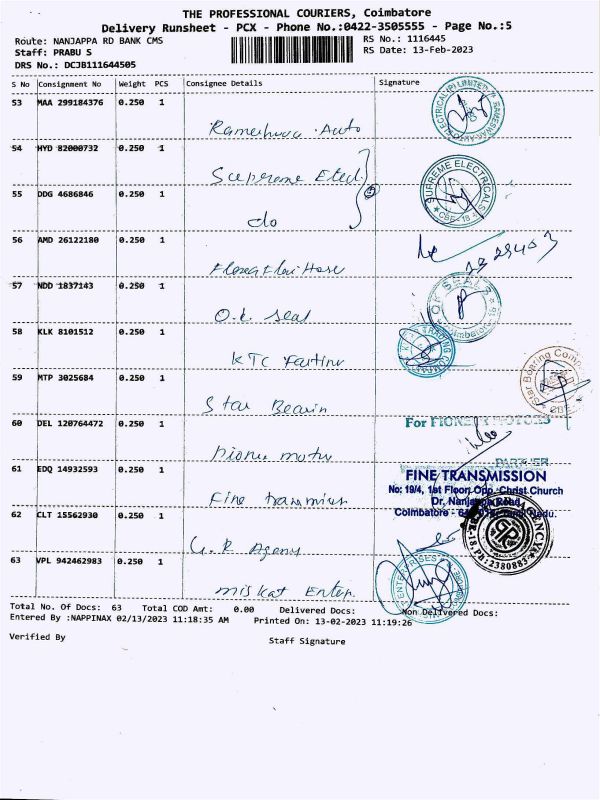 THE PROFESSIONAL COURIERS, Coimbatore
Delivery Runsheet - PCX - Phone No.:0422-3505555 - Page No.:5
Route: NANJAPPA RD BANK CMS
RS No.: 1116445
Staff: PRABU S
RS Date: 13-Feb-2023
DRS No.: DCJB111644505
S No Consignment No Weight PCS Consignee Details Signature
53 MAA 299184376 0.250 1
Rameshwa Auto
54 HYD 82000732 0.250 1
Supreme Eled
55 DDG 4686846 0.250 1
do
SUPREME ELECTRICALS
CBE-18
56 AMD 26122180 0.250 1
57 NDD 1837143 0.250 1
O.k. Seal
OK SEALS
Coimbatore
58 KLK 8101512 0.250 1
KTC
59 MTP 3025684 0.250 1
Star Bearin
Star Bearing Comp
60 DEL 120764472 0.250 1
For PIONEER MOTORS
PARTNER
61 EDQ 14932593 0.250 1
Fine
FINE TRANSMISSION
No: 19/4, 1st Floor, Opp. Christ Church
Dr. Nanjappa Road,
Coimbatore -
62 CLT 15562930 0.250 1
G.R. Agency
Ph: 2380883
63 VPL 942462983 0.250 1
miskat Enter
ENTERPRISES
Total No. Of Docs: 63 Total COD Amt: 0.00 Delivered Docs: Non Delivered Docs:
Entered By :NAPPINAX 02/13/2023 11:18:35 AM Printed On: 13-02-2023 11:19:26
Verified By Staff Signature